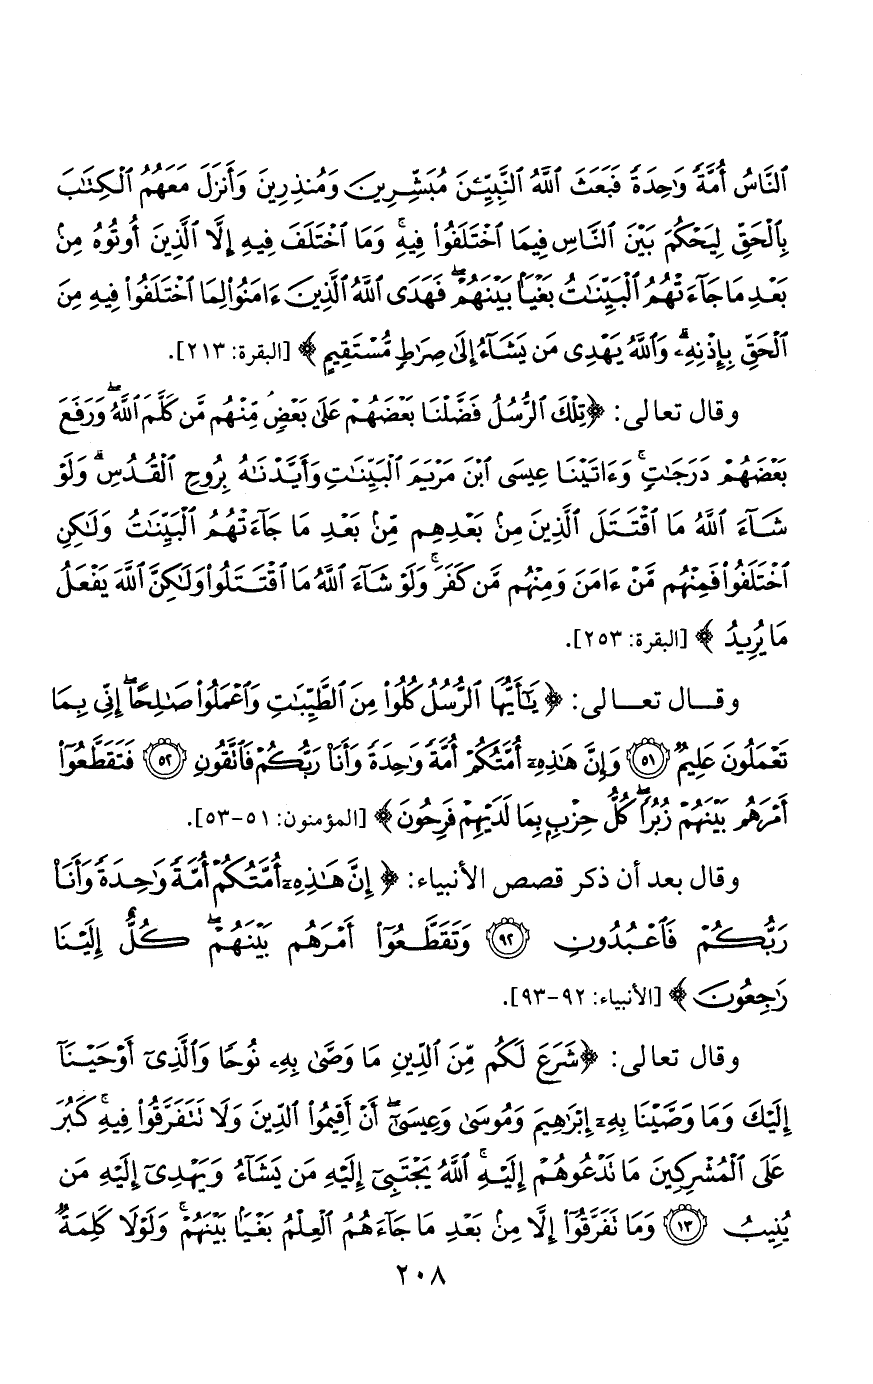 ٱلنَّاسُ أُمَّةً وَٰحِدَةً فَبَعَثَ ٱللَّهُ ٱلنَّبِيِّـۧنَ مُبَشِّرِينَ وَمُنذِرِينَ وَأَنزَلَ مَعَهُمُ ٱلْكِتَٰبَ
بِٱلْحَقِّ لِيَحْكُمَ بَيْنَ ٱلنَّاسِ فِيمَا ٱخْتَلَفُوا۟ فِيهِ ۚ وَمَا ٱخْتَلَفَ فِيهِ إِلَّا ٱلَّذِينَ أُوتُوهُ مِنۢ
بَعْدِ مَا جَآءَتْهُمُ ٱلْبَيِّنَٰتُ بَغْيًۢا بَيْنَهُمْ ۖ فَهَدَى ٱللَّهُ ٱلَّذِينَ ءَامَنُوا۟ لِمَا ٱخْتَلَفُوا۟ فِيهِ مِنَ
ٱلْحَقِّ بِإِذْنِهِۦ ۗ وَٱللَّهُ يَهْدِى مَن يَشَآءُ إِلَىٰ صِرَٰطٍ مُّسْتَقِيمٍ ﴾ [البقرة: ٢١٣].
وقال تعالى: ﴿تِلْكَ ٱلرُّسُلُ فَضَّلْنَا بَعْضَهُمْ عَلَىٰ بَعْضٍ مِّنْهُم مَّن كَلَّمَ ٱللَّهُ ۖ وَرَفَعَ
بَعْضَهُمْ دَرَجَٰتٍ ۚ وَءَاتَيْنَا عِيسَى ٱبْنَ مَرْيَمَ ٱلْبَيِّنَٰتِ وَأَيَّدْنَٰهُ بِرُوحِ ٱلْقُدُسِ ۗ وَلَوْ
شَآءَ ٱللَّهُ مَا ٱقْتَتَلَ ٱلَّذِينَ مِنۢ بَعْدِهِم مِّنۢ بَعْدِ مَا جَآءَتْهُمُ ٱلْبَيِّنَٰتُ وَلَٰكِنِ
ٱخْتَلَفُوا۟ فَمِنْهُم مَّنْ ءَامَنَ وَمِنْهُم مَّن كَفَرَ ۚ وَلَوْ شَآءَ ٱللَّهُ مَا ٱقْتَتَلُوا۟ وَلَٰكِنَّ ٱللَّهَ يَفْعَلُ
مَا يُرِيدُ ﴾ [البقرة: ٢٥٣].
وقال تعالى: ﴿ يَٰٓأَيُّهَا ٱلرُّسُلُ كُلُوا۟ مِنَ ٱلطَّيِّبَٰتِ وَٱعْمَلُوا۟ صَٰلِحًا ۖ إِنِّى بِمَا
تَعْمَلُونَ عَلِيمٌ ۝٥١ وَإِنَّ هَٰذِهِۦٓ أُمَّتُكُمْ أُمَّةً وَٰحِدَةً وَأَنَا۠ رَبُّكُمْ فَٱتَّقُونِ ۝٥٢ فَتَقَطَّعُوٓا۟
أَمْرَهُم بَيْنَهُمْ زُبُرًا ۖ كُلُّ حِزْبٍۭ بِمَا لَدَيْهِمْ فَرِحُونَ ﴾ [المؤمنون: ٥١-٥٣].
وقال بعد أن ذكر قصص الأنبياء: ﴿ إِنَّ هَٰذِهِۦٓ أُمَّتُكُمْ أُمَّةً وَٰحِدَةً وَأَنَا۠
رَبُّكُمْ فَٱعْبُدُونِ ۝٩٢ وَتَقَطَّعُوٓا۟ أَمْرَهُم بَيْنَهُمْ ۖ كُلٌّ إِلَيْنَا
رَٰجِعُونَ ﴾ [الأنبياء: ٩٢-٩٣].
وقال تعالى: ﴿شَرَعَ لَكُم مِّنَ ٱلدِّينِ مَا وَصَّىٰ بِهِۦ نُوحًا وَٱلَّذِىٓ أَوْحَيْنَآ
إِلَيْكَ وَمَا وَصَّيْنَا بِهِۦٓ إِبْرَٰهِيمَ وَمُوسَىٰ وَعِيسَىٰٓ ۖ أَنْ أَقِيمُوا۟ ٱلدِّينَ وَلَا تَتَفَرَّقُوا۟ فِيهِ ۚ كَبُرَ
عَلَى ٱلْمُشْرِكِينَ مَا تَدْعُوهُمْ إِلَيْهِ ۚ ٱللَّهُ يَجْتَبِىٓ إِلَيْهِ مَن يَشَآءُ وَيَهْدِىٓ إِلَيْهِ مَن
يُنِيبُ ۝١٣ وَمَا تَفَرَّقُوٓا۟ إِلَّا مِنۢ بَعْدِ مَا جَآءَهُمُ ٱلْعِلْمُ بَغْيًۢا بَيْنَهُمْ ۚ وَلَوْلَا كَلِمَةٌ
٢٠٨